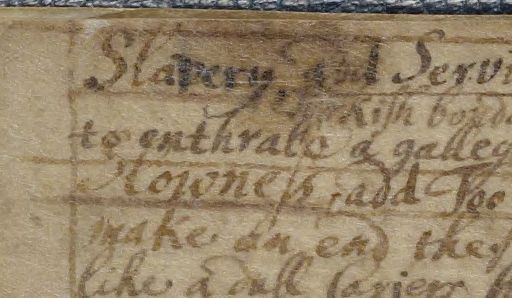 Slavery, and Servi
Turkish bonda
to enthrall a galley
Slowness, add Too
make an end they
like a dull Carier